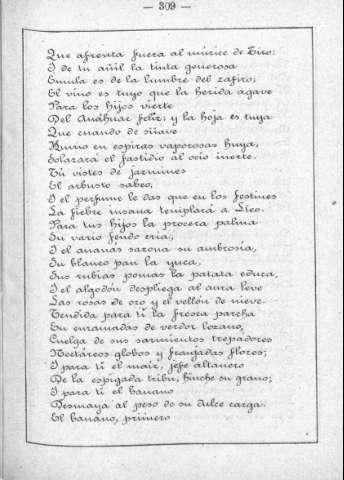 — 309 —
Que afrenta fuera al múrice de Tiro;
I de tu añil la tinta generosa
Émula es de la lumbre del zafiro;
El vino es tuyo que la herida agave
Para los hijos vierte
Del Anáhuac feliz; y la hoja es tuya
Que cuando de süave
Humo en espiras vaporosas huya,
Solazará el fastidio al ocio inerte.
Tú vistes de jazmines
El arbusto sabeo,
I el perfume le das que en los festines
La fiebre insana templará a Lieo.
Para tus hijos la procera palma
Su vario feudo cria,
I el ananás sazona su ambrosía,
Su blanco pan la yuca,
Sus rubias pomas la patata educa,
I el algodón despliega al aura leve
Las rosas de oro y el vellón de nieve.
Tendida para ti la fresca parcha
En enramadas de verdor lozano,
Cuelga de sus sarmientos trepadores
Nectáreos globos y franjadas flores;
I para ti el maiz, jefe altanero
De la espigada tribu, hinche su grano;
I para ti el banano
Desmaya al peso de su dulce carga.
El banano, primero